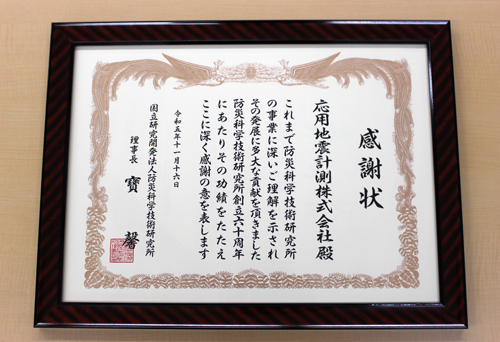 感謝状
応用地震計測株式会社殿
これまで防災科学技術研究所
の事業に深いご理解を示され
その発展に多大な貢献を頂きました
防災科学技術研究所創立六十周年
にあたりその功績をたたえ
ここに深く感謝の意を表します
令和五年十一月十六日
国立研究開発法人防災科学技術研究所
理事長 寶 馨